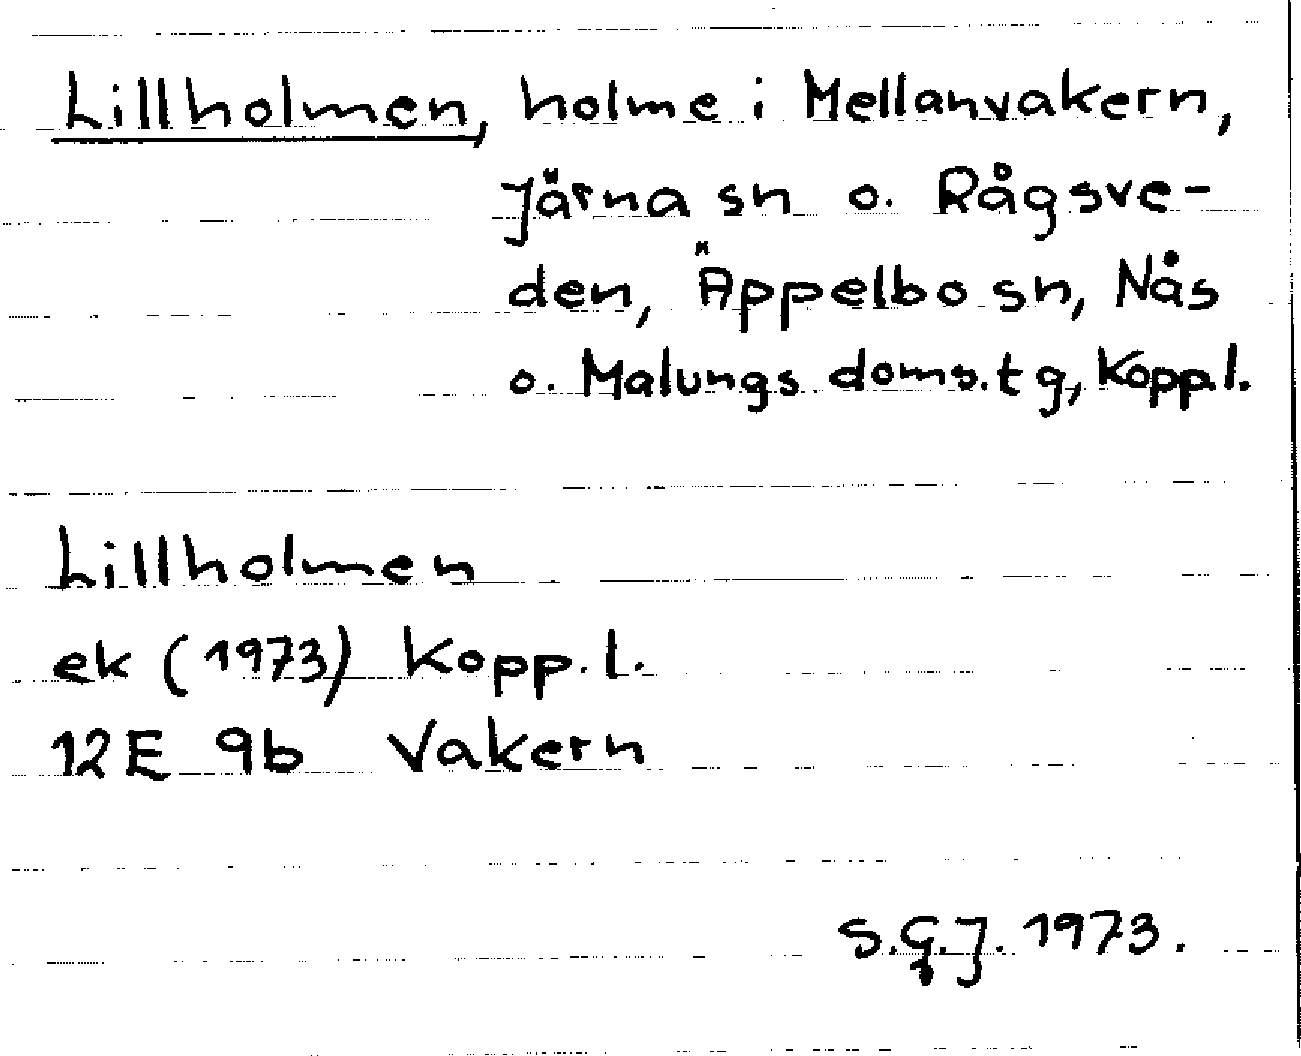 Lillholmen, holme i Mellanvakern,
Järna sn o. Rågsve-
den, Äppelbo sn, Nås
o. Malungs doms.tg, Kopp.l.
Lillholmen
ek (1973) Kopp.l.
12E 9b Vakern
S.G.J. 1973.